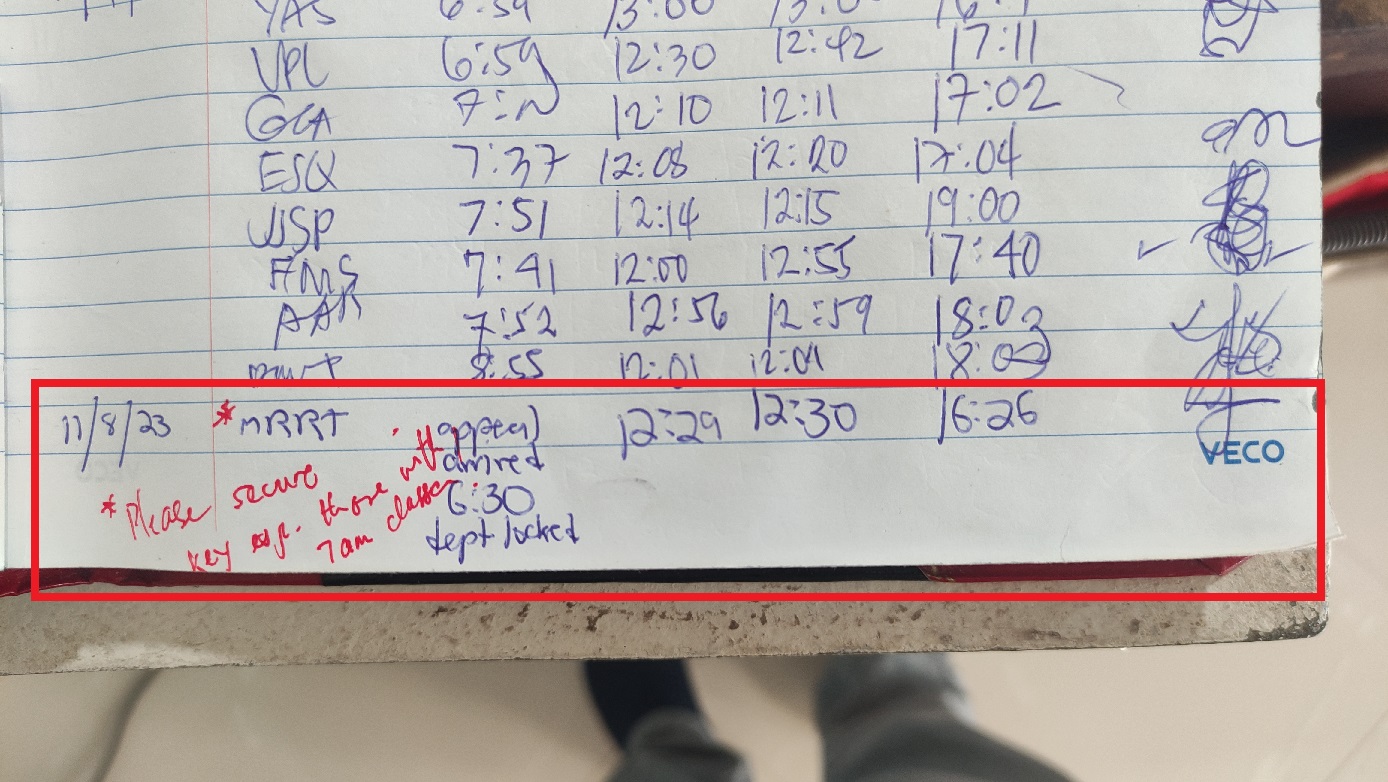 YAS 6:59 13:00
VPL 6:59 12:30 12:42 17:11
GCA 12:10 12:11 17:02
ESQ 7:37 12:08 12:20 17:04
JSP 7:51 12:14 12:15 19:00
AMS 7:41 12:00 12:55 17:40
AAR 7:52 12:56 12:59 18:03
8:55 12:01 12:01 18:03
11/8/23 *MRRT 12:29 12:30 16:26
arrived
6:30
dept locked
*Please secure
key esp. those with
7am classes
VECO